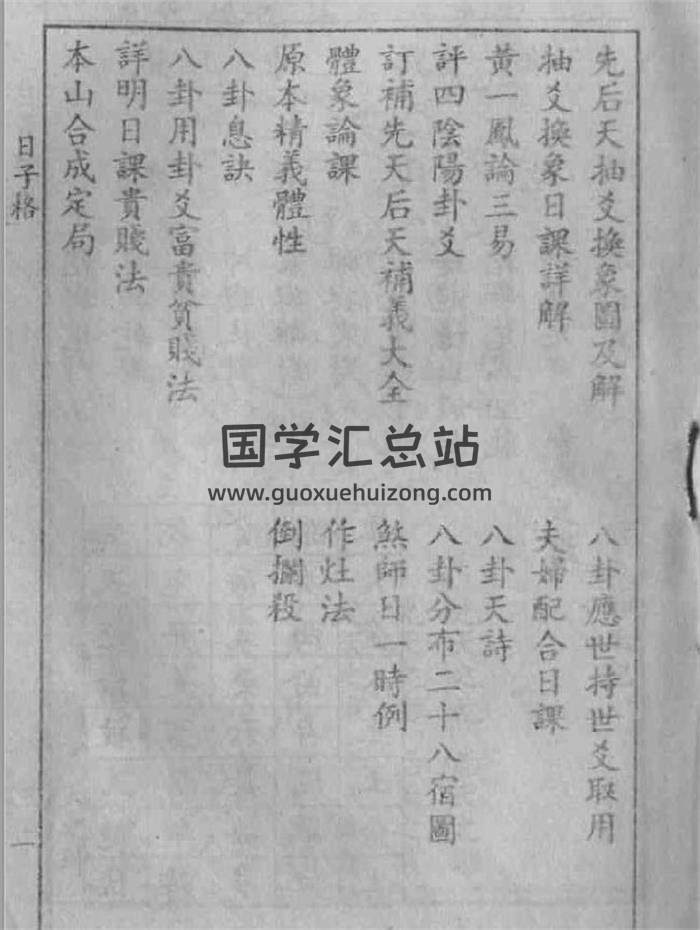 先后天抽爻換象圖及解
抽爻換象日課詳解
黃一鳳論三易
評四陰陽卦爻
訂補先天后天補義大全
體象論課
原本精義體性
八卦息訣
八卦用卦爻富貴貧賤法
詳明日課貴賤法
本山合成定局
八卦應世持世爻取用
夫婦配合日課
八卦天詩
八卦分布二十八宿圖
煞師日一時例
作灶法
倒攔殺
日子格
一
国学汇总站
www.guoxuehuizong.com